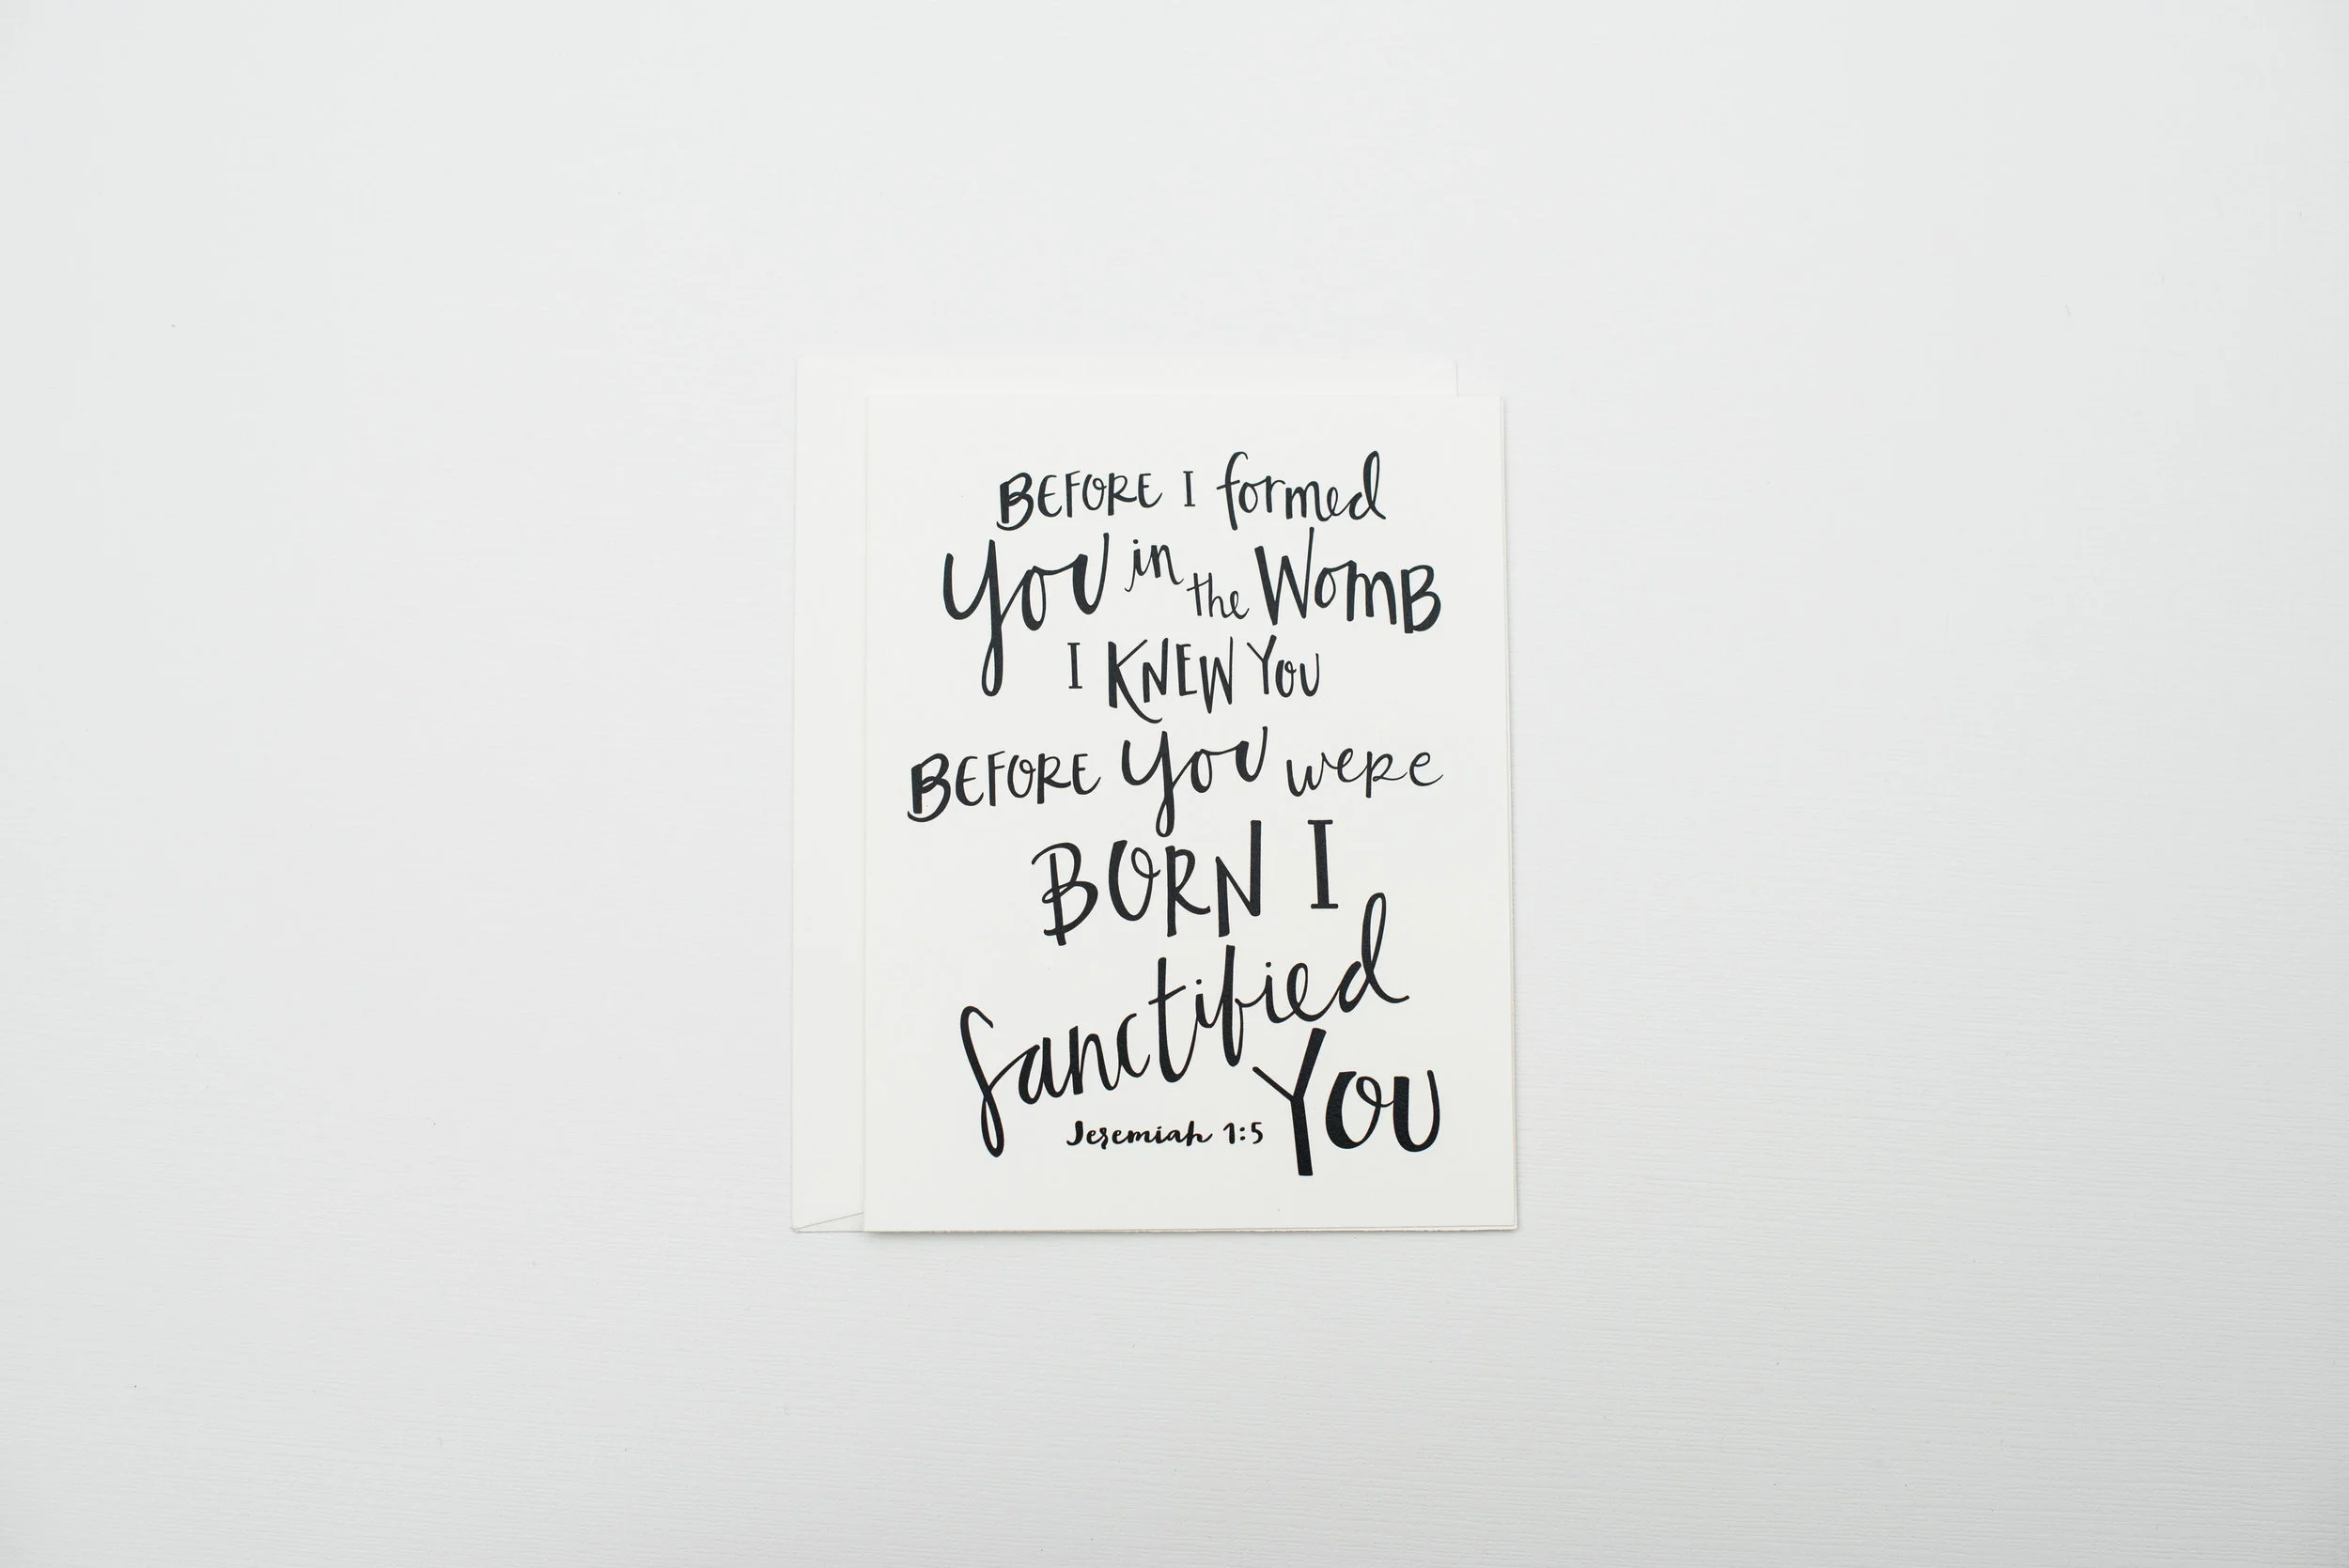 BEFORE I formed
you in the WOMB
I KNEW YOU
BEFORE you were
BORN I
Sanctified
YOU
Jeremiah 1:5